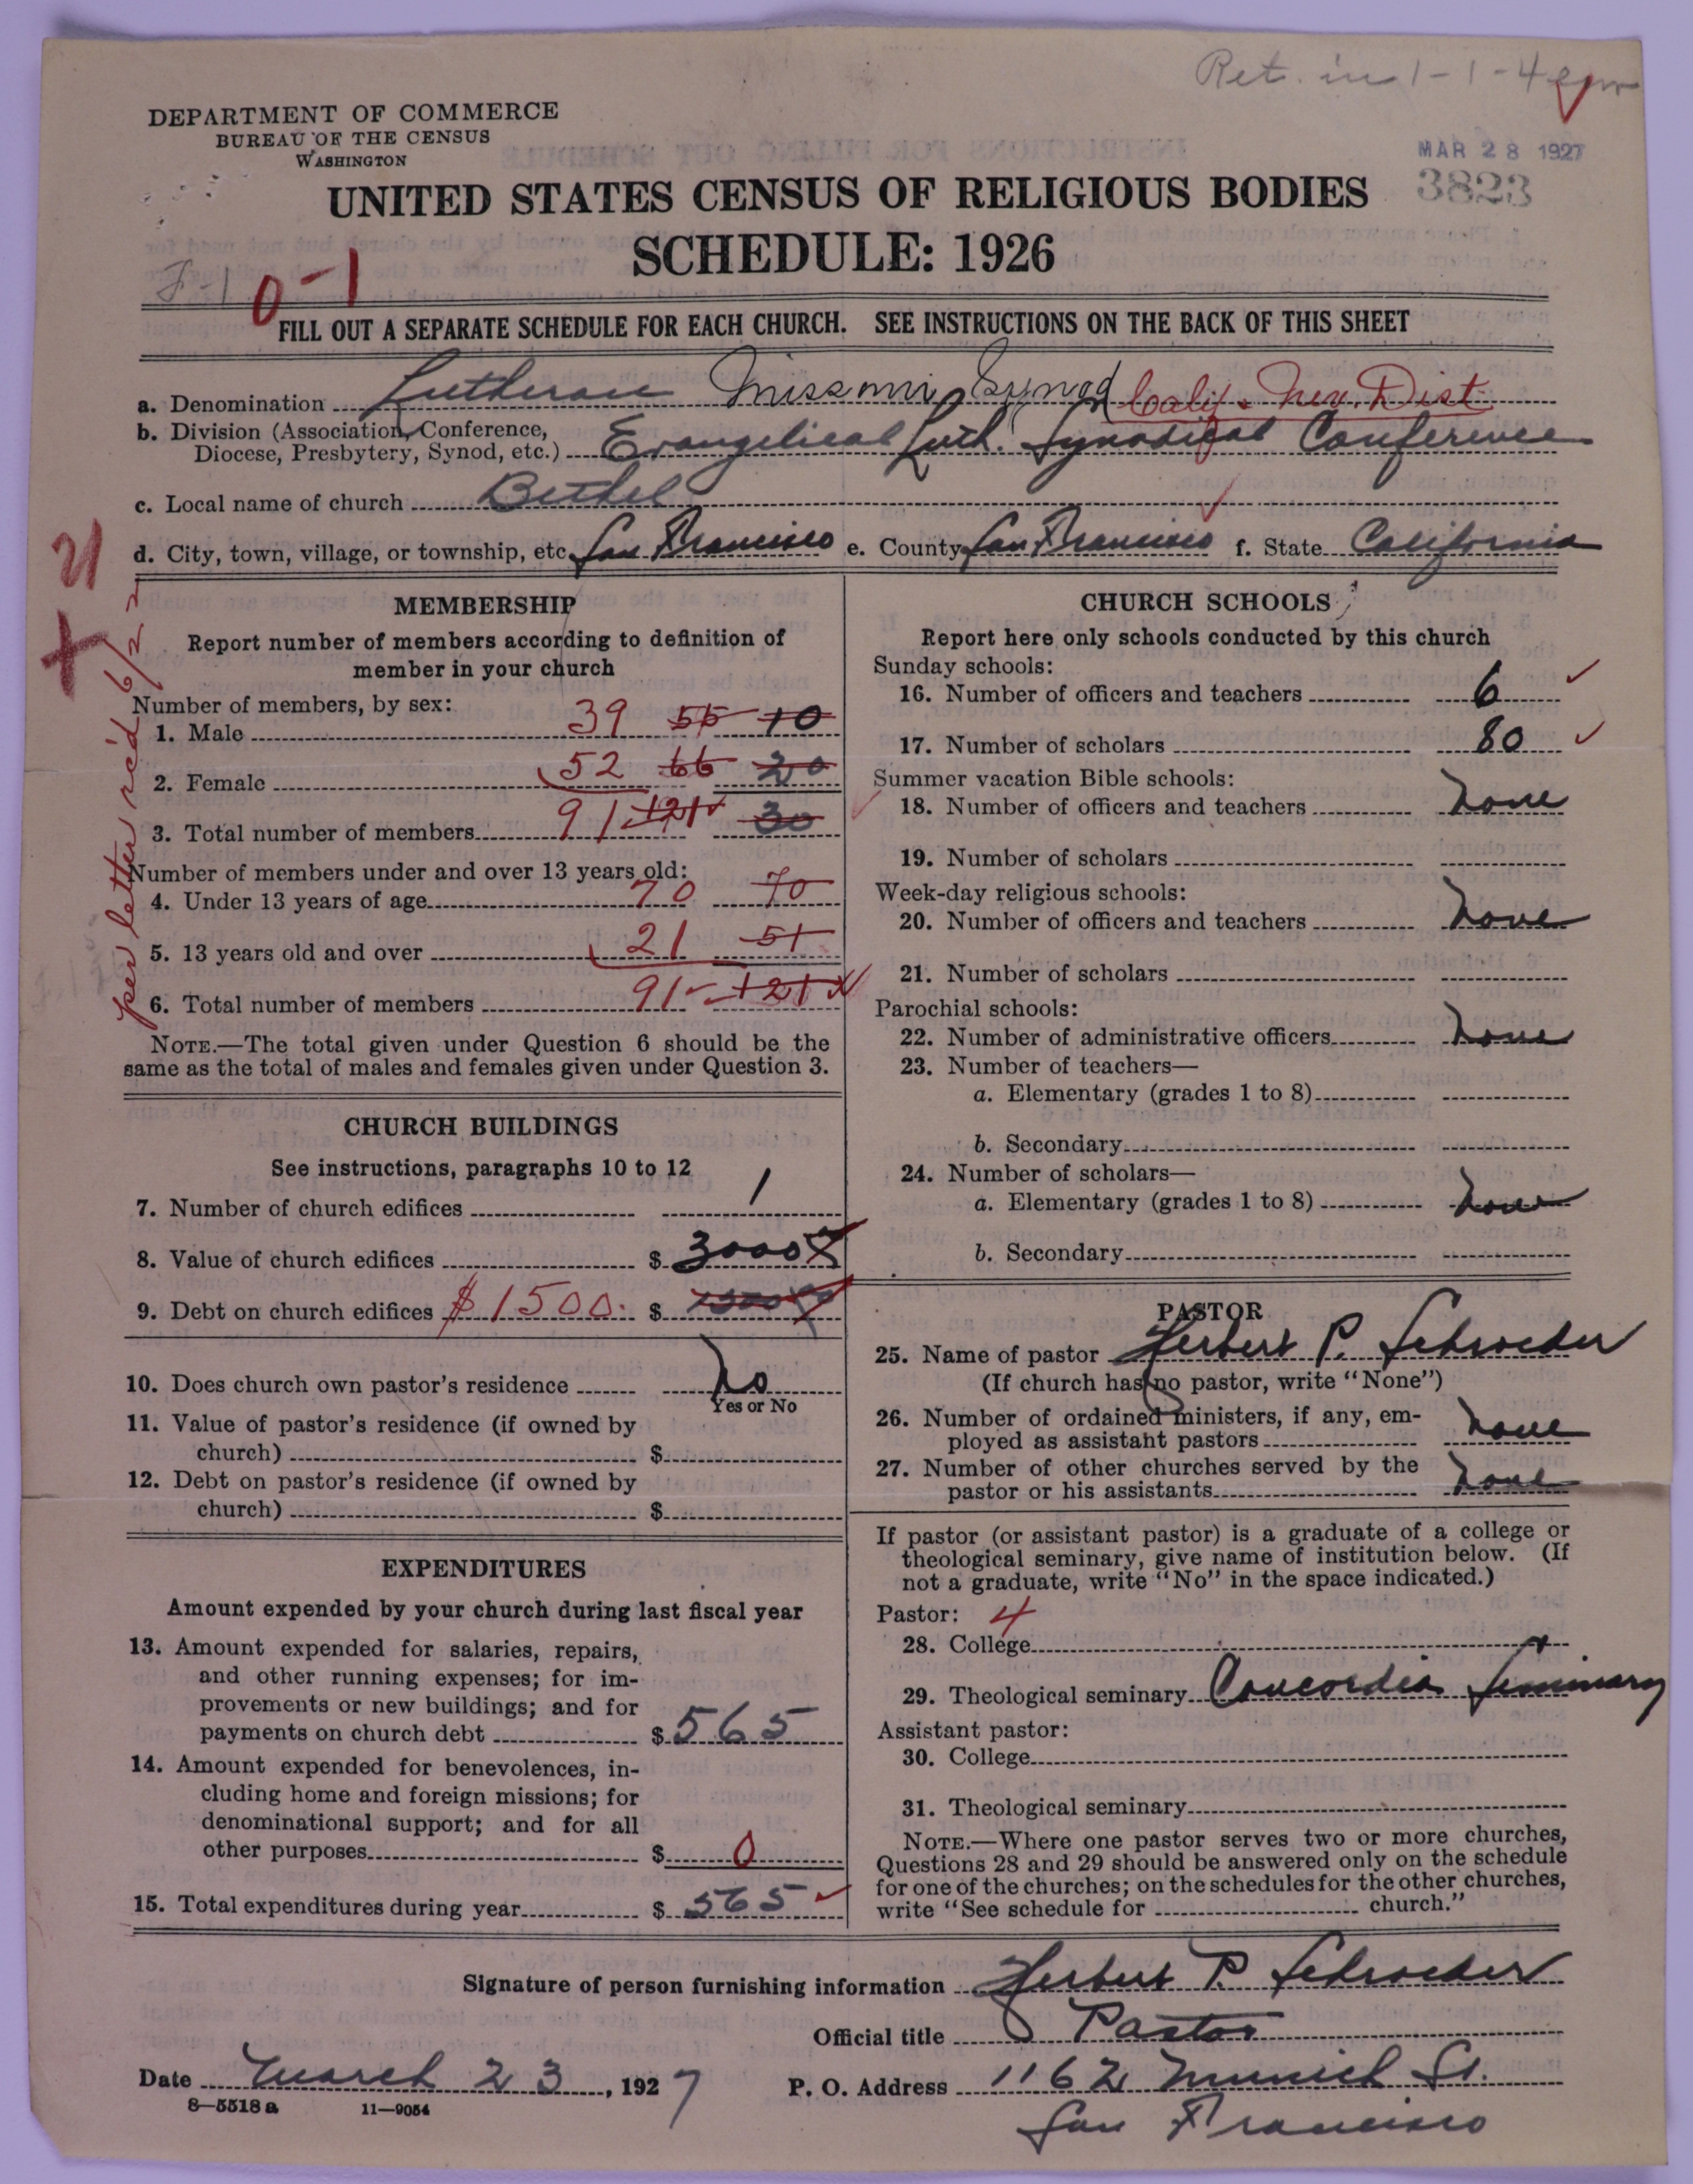 Ret. in 1-1-4
DEPARTMENT OF COMMERCE
BUREAU OF THE CENSUS
WASHINGTON
MAR 28 1927
3823
UNITED STATES CENSUS OF RELIGIOUS BODIES
SCHEDULE: 1926
F-1 0-1
FILL OUT A SEPARATE SCHEDULE FOR EACH CHURCH. SEE INSTRUCTIONS ON THE BACK OF THIS SHEET
a. Denomination Lutheran Missouri Synod Calif. Nev. Dist
b. Division (Association, Conference,
Diocese, Presbytery, Synod, etc.) Evangelical Luth. Synodical Conference
c. Local name of church Bethel
d. City, town, village, or township, etc. San Francisco e. County San Francisco f. State California
21
per letter rec'd 6/22
MEMBERSHIP
Report number of members according to definition of
member in your church
Number of members, by sex:
1. Male 39 55 10
2. Female 52 66 20
3. Total number of members 91 121 30
Number of members under and over 13 years old:
4. Under 13 years of age 70 70
5. 13 years old and over 21 51
6. Total number of members 91 121
NOTE.—The total given under Question 6 should be the
same as the total of males and females given under Question 3.
CHURCH BUILDINGS
See instructions, paragraphs 10 to 12
7. Number of church edifices 1
8. Value of church edifices $ 3000
9. Debt on church edifices $1500. $
10. Does church own pastor's residence No
Yes or No
11. Value of pastor's residence (if owned by
church) $
12. Debt on pastor's residence (if owned by
church) $
EXPENDITURES
Amount expended by your church during last fiscal year
13. Amount expended for salaries, repairs,
and other running expenses; for im-
provements or new buildings; and for
payments on church debt $ 565
14. Amount expended for benevolences, in-
cluding home and foreign missions; for
denominational support; and for all
other purposes $ 0
15. Total expenditures during year $ 565
CHURCH SCHOOLS
Report here only schools conducted by this church
Sunday schools:
16. Number of officers and teachers 6
17. Number of scholars 80
Summer vacation Bible schools:
18. Number of officers and teachers None
19. Number of scholars
Week-day religious schools:
20. Number of officers and teachers None
21. Number of scholars
Parochial schools:
22. Number of administrative officers None
23. Number of teachers—
a. Elementary (grades 1 to 8)
b. Secondary
24. Number of scholars—
a. Elementary (grades 1 to 8) None
b. Secondary
PASTOR
25. Name of pastor Herbert P. Schroeder
(If church has no pastor, write "None")
26. Number of ordained ministers, if any, em-
ployed as assistant pastors None
27. Number of other churches served by the
pastor or his assistants None
If pastor (or assistant pastor) is a graduate of a college or
theological seminary, give name of institution below. (If
not a graduate, write "No" in the space indicated.)
Pastor: 4
28. College
29. Theological seminary Concordia Seminary
Assistant pastor:
30. College
31. Theological seminary
NOTE.—Where one pastor serves two or more churches,
Questions 28 and 29 should be answered only on the schedule
for one of the churches; on the schedules for the other churches,
write "See schedule for church."
Signature of person furnishing information Herbert P. Schroeder
Official title Pastor
Date March 23, 1927 P. O. Address 1162 Munich St.
San Francisco
8—5518 a 11—9054